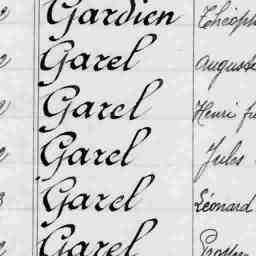 Gardien Théoph
Garel Auguste
Garel Henri
Garel Jules
Garel Léonard
Garel Prosper